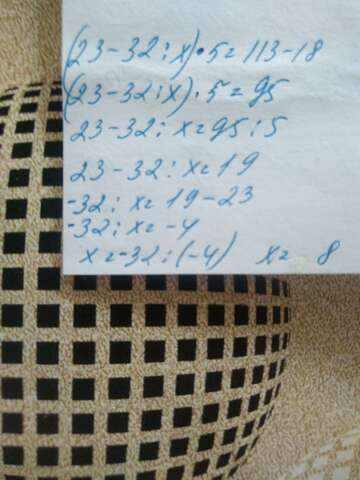 (23-32:x)·5=113-18
(23-32:x)·5=95
23-32:x=95:5
23-32:x=19
-32:x=19-23
-32:x=-4
x=-32:(-4) x= 8